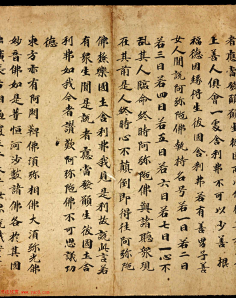 者應當發願願生彼國所以
上善人俱會一處舍利弗不可以少善根
福德因緣得生彼國舍利弗若有善男子善
女人聞說阿弥陀佛執持名号若一日若二日
若三日若四日若五日若六日若七日一心不
亂其人臨命終時阿弥陀佛與諸聖衆現
在其前是人終時心不顛倒即得往生阿弥陀
佛極樂國土舍利弗我見是利故說此言若
有衆生聞是說者應當發願生彼國土舍
利弗如我今者讚歎阿弥陀佛不可思議功
德
東方亦有阿閦鞞佛須弥相佛大須弥光佛
妙音佛如是等恒河沙數諸佛各於其國